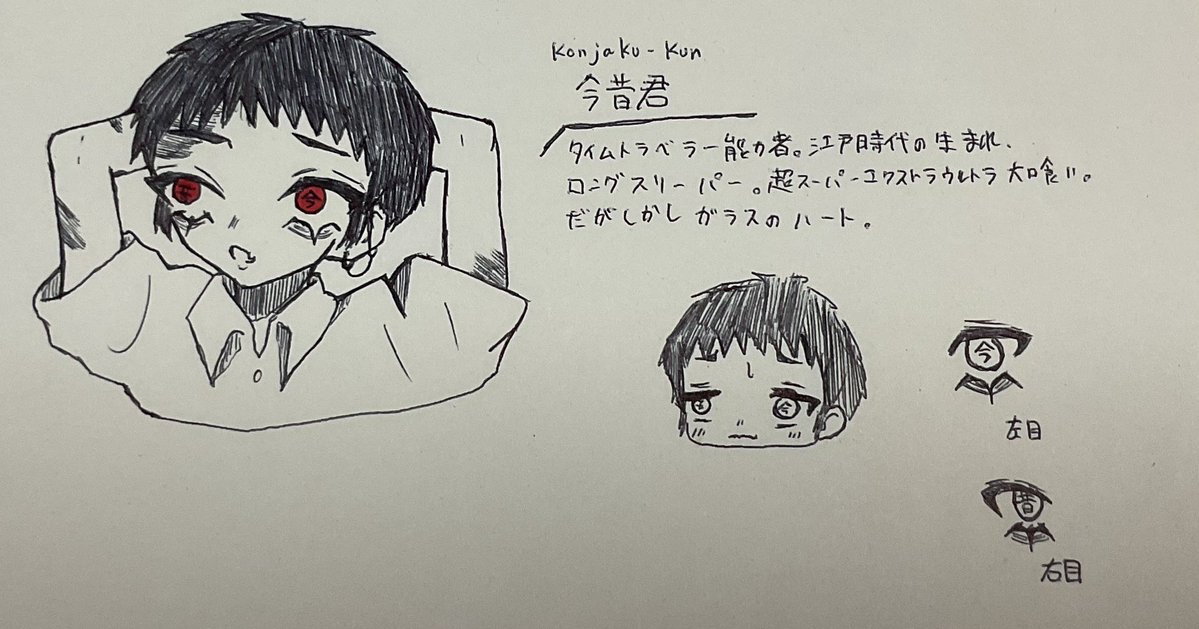 Konjaku-Kun
今昔君
タイムトラベラー能力者。江戸時代の生まれ、
ロングスリーパー。超スーパーエクストラウルトラ大喰い。
だがしかしガラスのハート。
昔 今
昔 今
今
左目
昔
右目